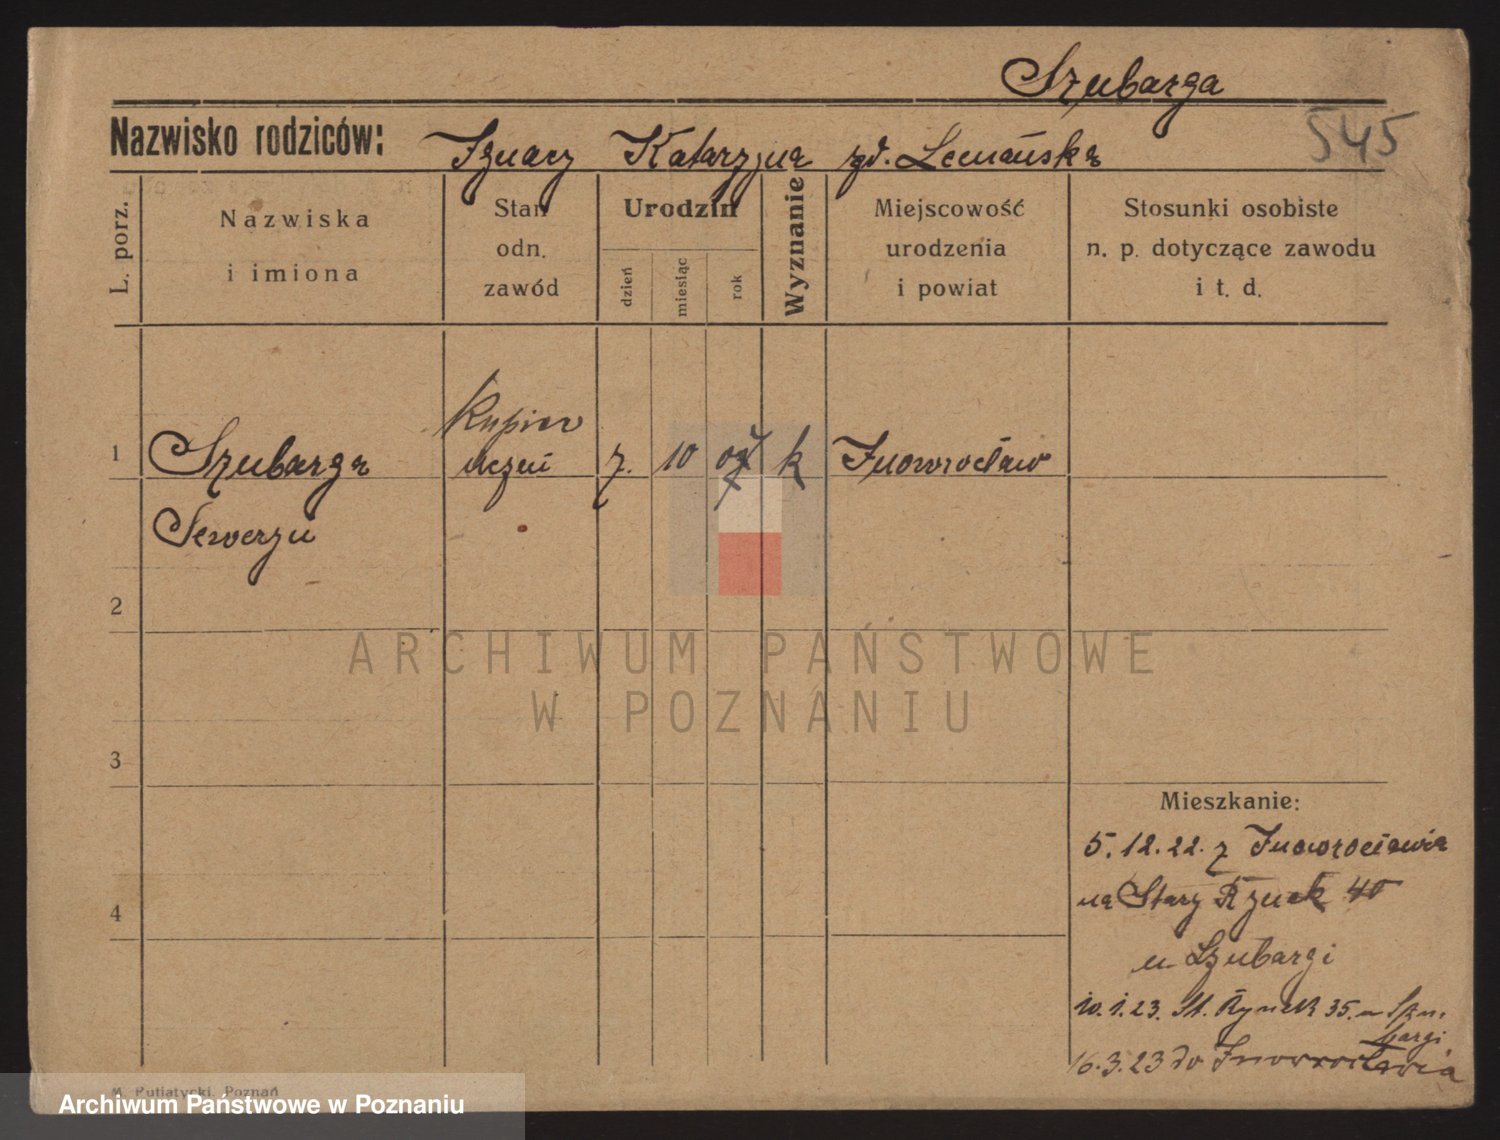 Szubarga
545
Nazwisko rodziców: Ignacy Katarzyna zd. Lemańska
L. porz.
Nazwiska
i imiona
Stan
odn.
zawód
Urodzin
dzień
miesiąc
rok
Wyznanie
Miejscowość
urodzenia
i powiat
Stosunki osobiste
n. p. dotyczące zawodu
i t. d.
kupiec
1 Szubarga uczeń 7. 10 k Inowrocław
Seweryn
2
ARCHIWUM PAŃSTWOWE
W POZNANIU
3
Mieszkanie:
5.12.22. z Inowrocławia
na Stary Rynek 40
4
u Szubargi
10.1.23. St. Rynek 35. u Szu-
bargi
16.3.23 do Inowrocławia
M. Putiatycki, Poznań
Archiwum Państwowe w Poznaniu